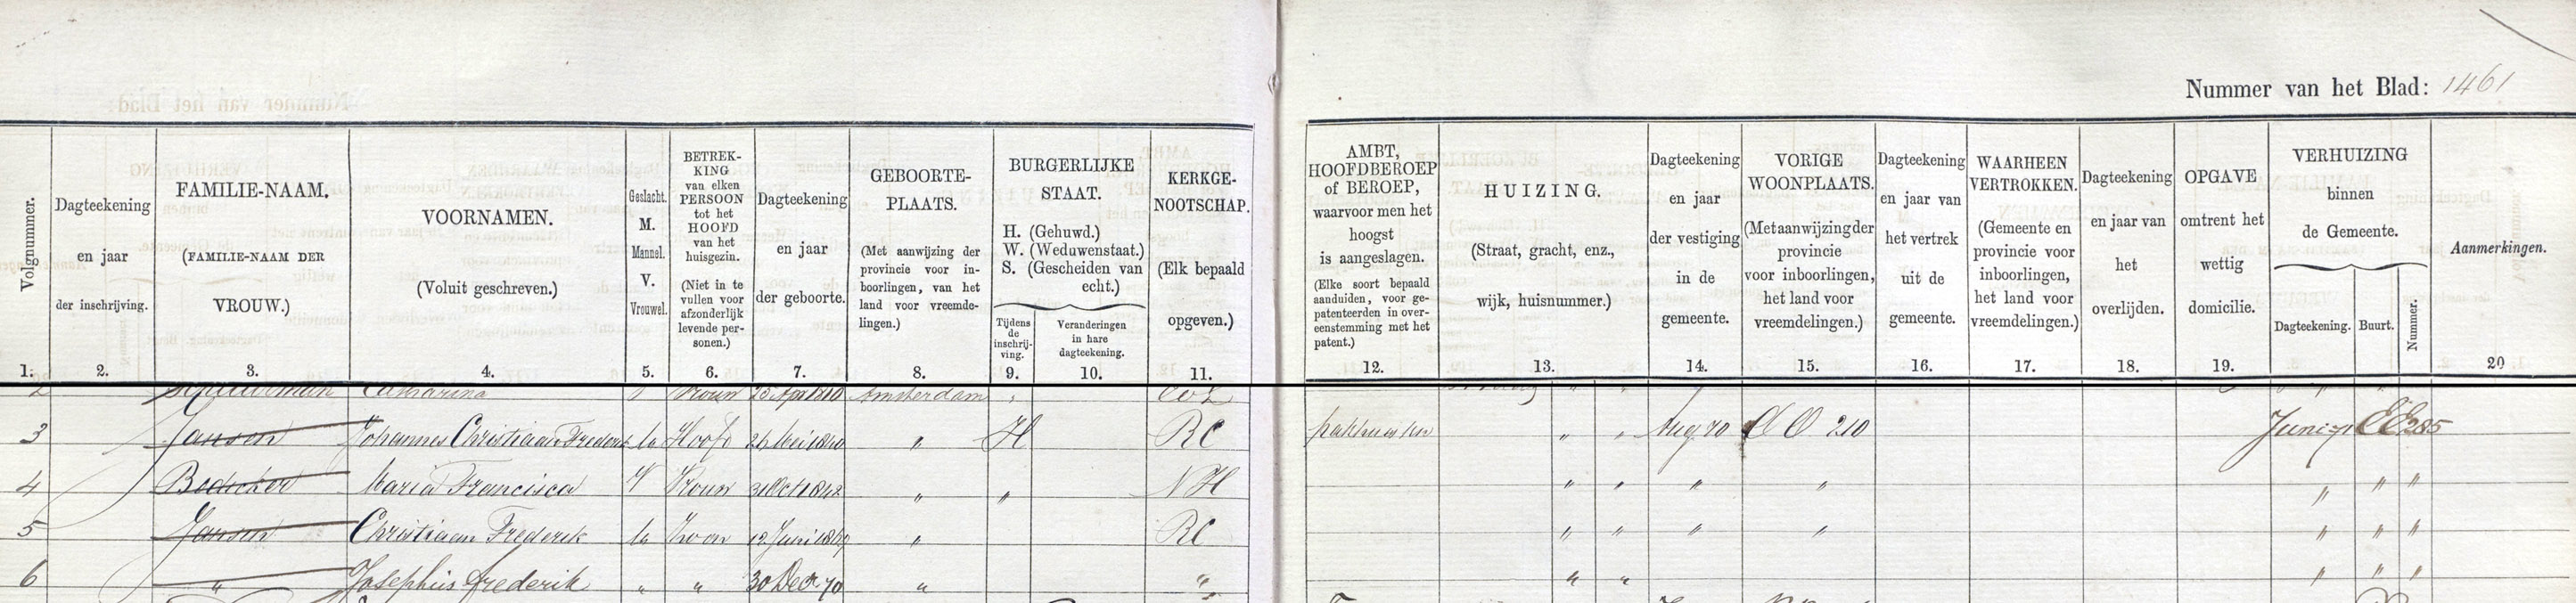 Nummer van het Blad: 1461
Volgnummer.
1.
Dagteekening
en jaar
der inschrijving.
2.
FAMILIE-NAAM.
(FAMILIE-NAAM DER
VROUW.)
3.
VOORNAMEN.
(Voluit geschreven.)
4.
Geslacht.
M.
Mannel.
V.
Vrouwel.
5.
BETREK-
KING
van elken
PERSOON
tot het
HOOFD
van het
huisgezin.
(Niet in te
vullen voor
afzonderlijk
levende per-
sonen.)
6.
Dagteekening
en jaar
der geboorte.
7.
GEBOORTE-
PLAATS.
(Met aanwijzing der
provincie voor in-
boorlingen, van het
land voor vreemde-
lingen.)
8.
BURGERLIJKE
STAAT.
H. (Gehuwd.)
W. (Weduwenstaat.)
S. (Gescheiden van
echt.)
Tijdens
de
inschrij-
ving.
9.
Veranderingen
in hare
dagteekening.
10.
KERKGE-
NOOTSCHAP.
(Elk bepaald
opgeven.)
11.
AMBT,
HOOFDBEROEP
of BEROEP,
waarvoor men het
hoogst
is aangeslagen.
(Elke soort bepaald
aanduiden, voor ge-
patenteerden in over-
eenstemming met het
patent.)
12.
HUIZING.
(Straat, gracht, enz.,
wijk, huisnummer.)
13.
Dagteekening
en jaar
der vestiging
in de
gemeente.
14.
VORIGE
WOONPLAATS.
(Met aanwijzing der
provincie
voor inboorlingen,
het land voor
vreemdelingen.)
15.
Dagteekening
en jaar van
het vertrek
uit de
gemeente.
16.
WAARHEEN
VERTROKKEN.
(Gemeente en
provincie voor
inboorlingen,
het land voor
vreemdelingen.)
17.
Dagteekening
en jaar van
het
overlijden.
18.
OPGAVE
omtrent het
wettig
domicilie.
19.
VERHUIZING
binnen
de Gemeente.
Dagteekening.
Buurt.
Nummer.
Aanmerkingen.
20
2 Catharina Vrouw 25 Apr 1810 Amsterdam
3 Jansen Johannes Christiaan Frederik M Hoofd Mei 1840 " H RC Aug 70 OO 210 Juni 71 EE 285
4 Bodicker Maria Francisca V Vrouw 31 Oct 1842 " " NH " " " " " " "
5 Jansen Christiaan Frederik M Zoon 12 Juni 1869 " RC " " " " " " "
6 " Josephus Frederik " " 30 Decr 70 " " " " " " "